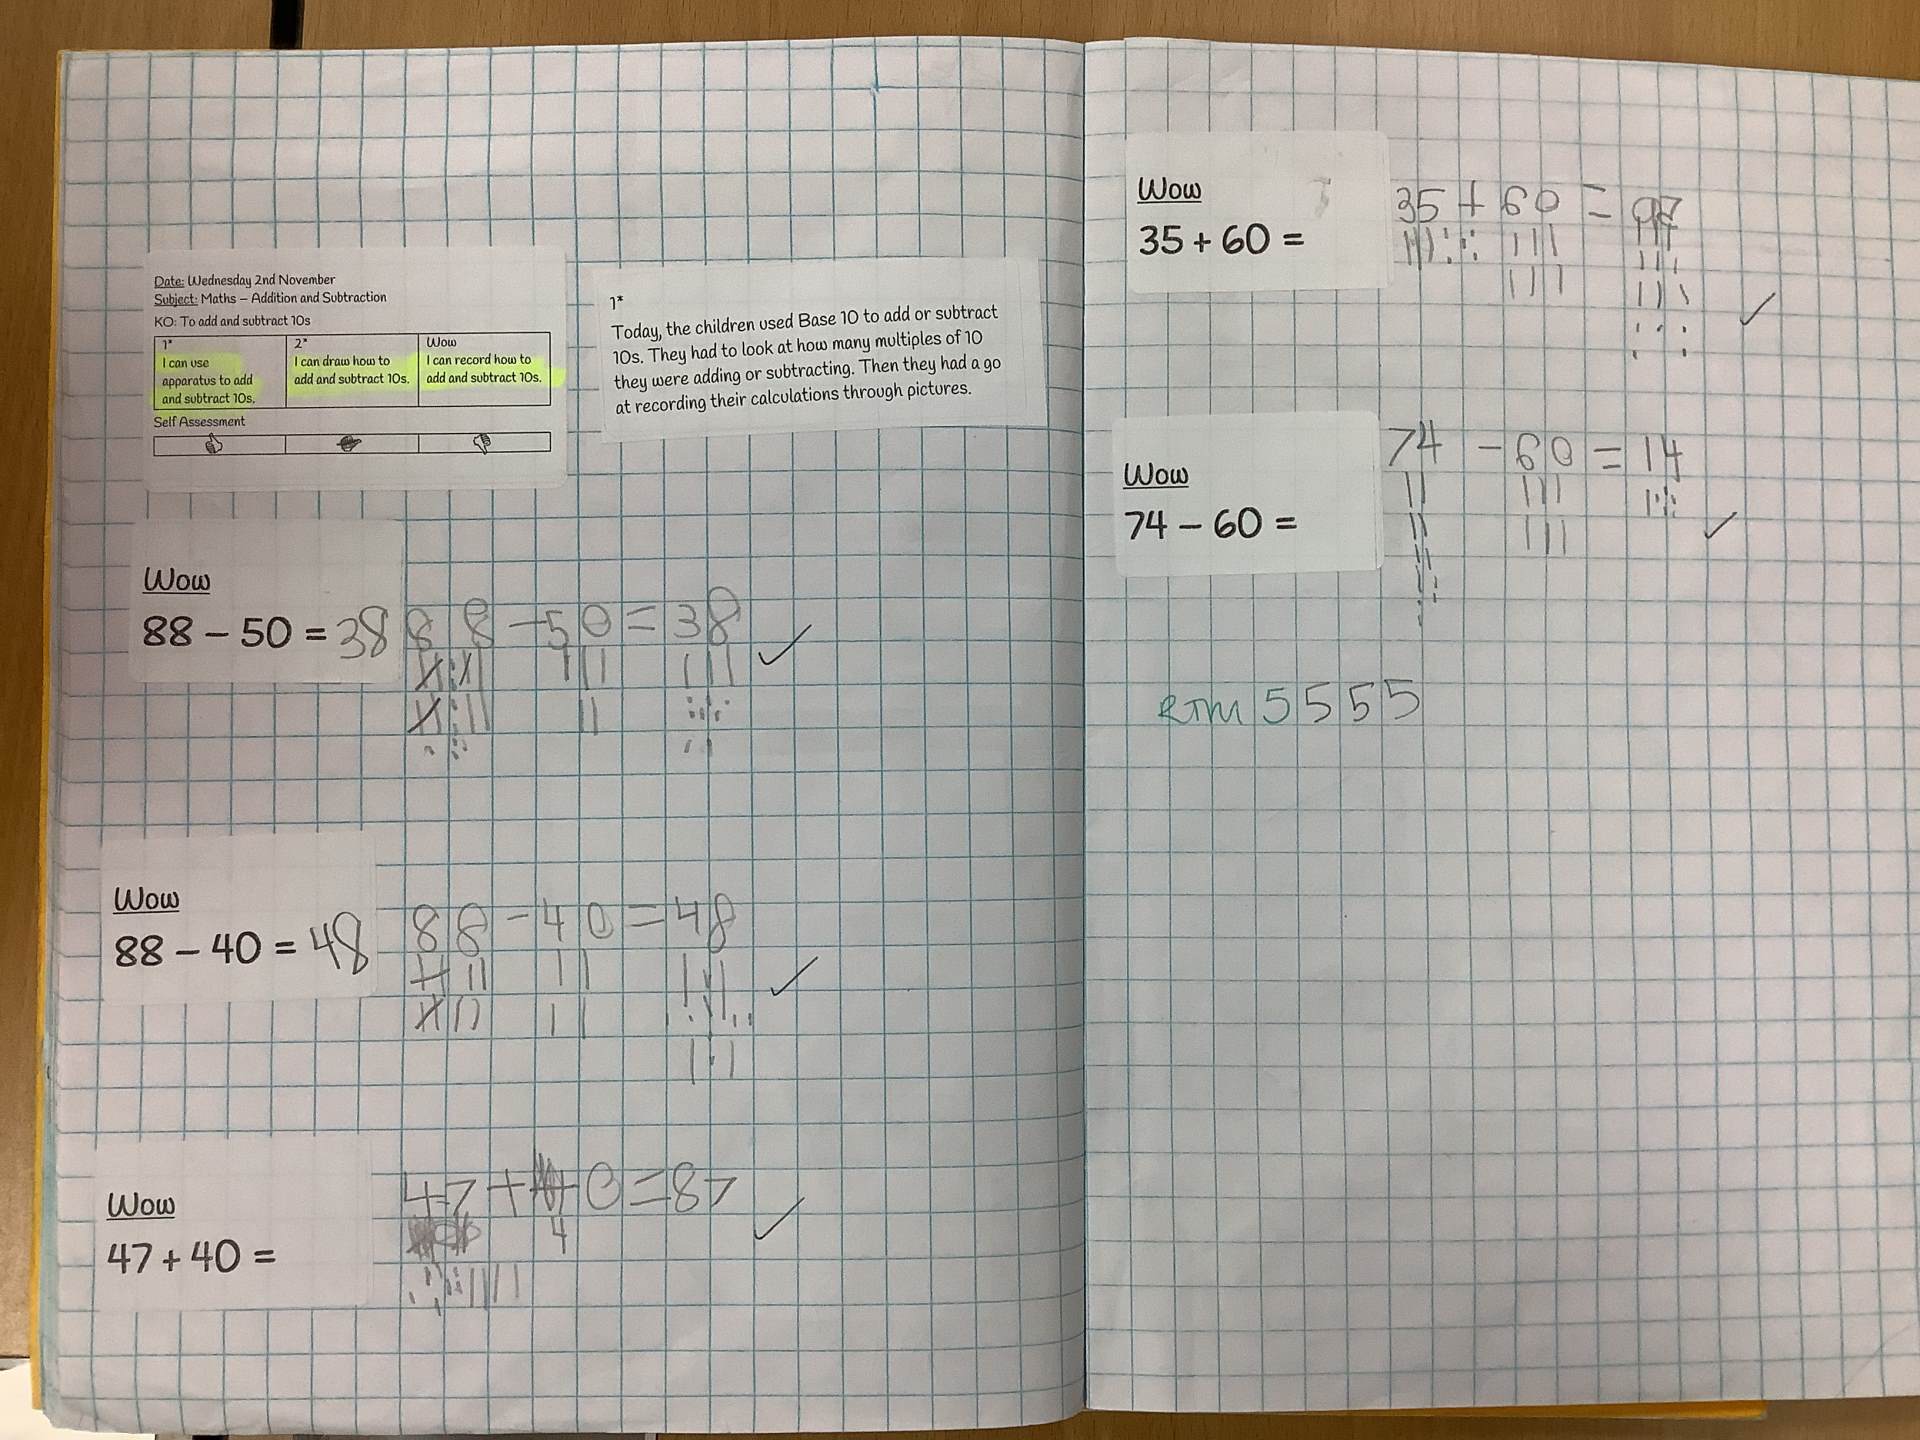 Date: Wednesday 2nd November
Subject: Maths – Addition and Subtraction
KO: To add and subtract 10s
1*
I can use
apparatus to add
and subtract 10s.
2*
I can draw how to
add and subtract 10s.
Wow
I can record how to
add and subtract 10s.
Self Assessment
1*
Today, the children used Base 10 to add or subtract
10s. They had to look at how many multiples of 10
they were adding or subtracting. Then they had a go
at recording their calculations through pictures.
Wow
88 – 50 = 38
88 – 50 = 38
Wow
88 – 40 = 48
88 – 40 = 48
Wow
47 + 40 =
47 + 0 = 87
4
Wow
35 + 60 =
35 + 60 =
Wow
74 – 60 =
74 – 60 = 14
5 5 5 5